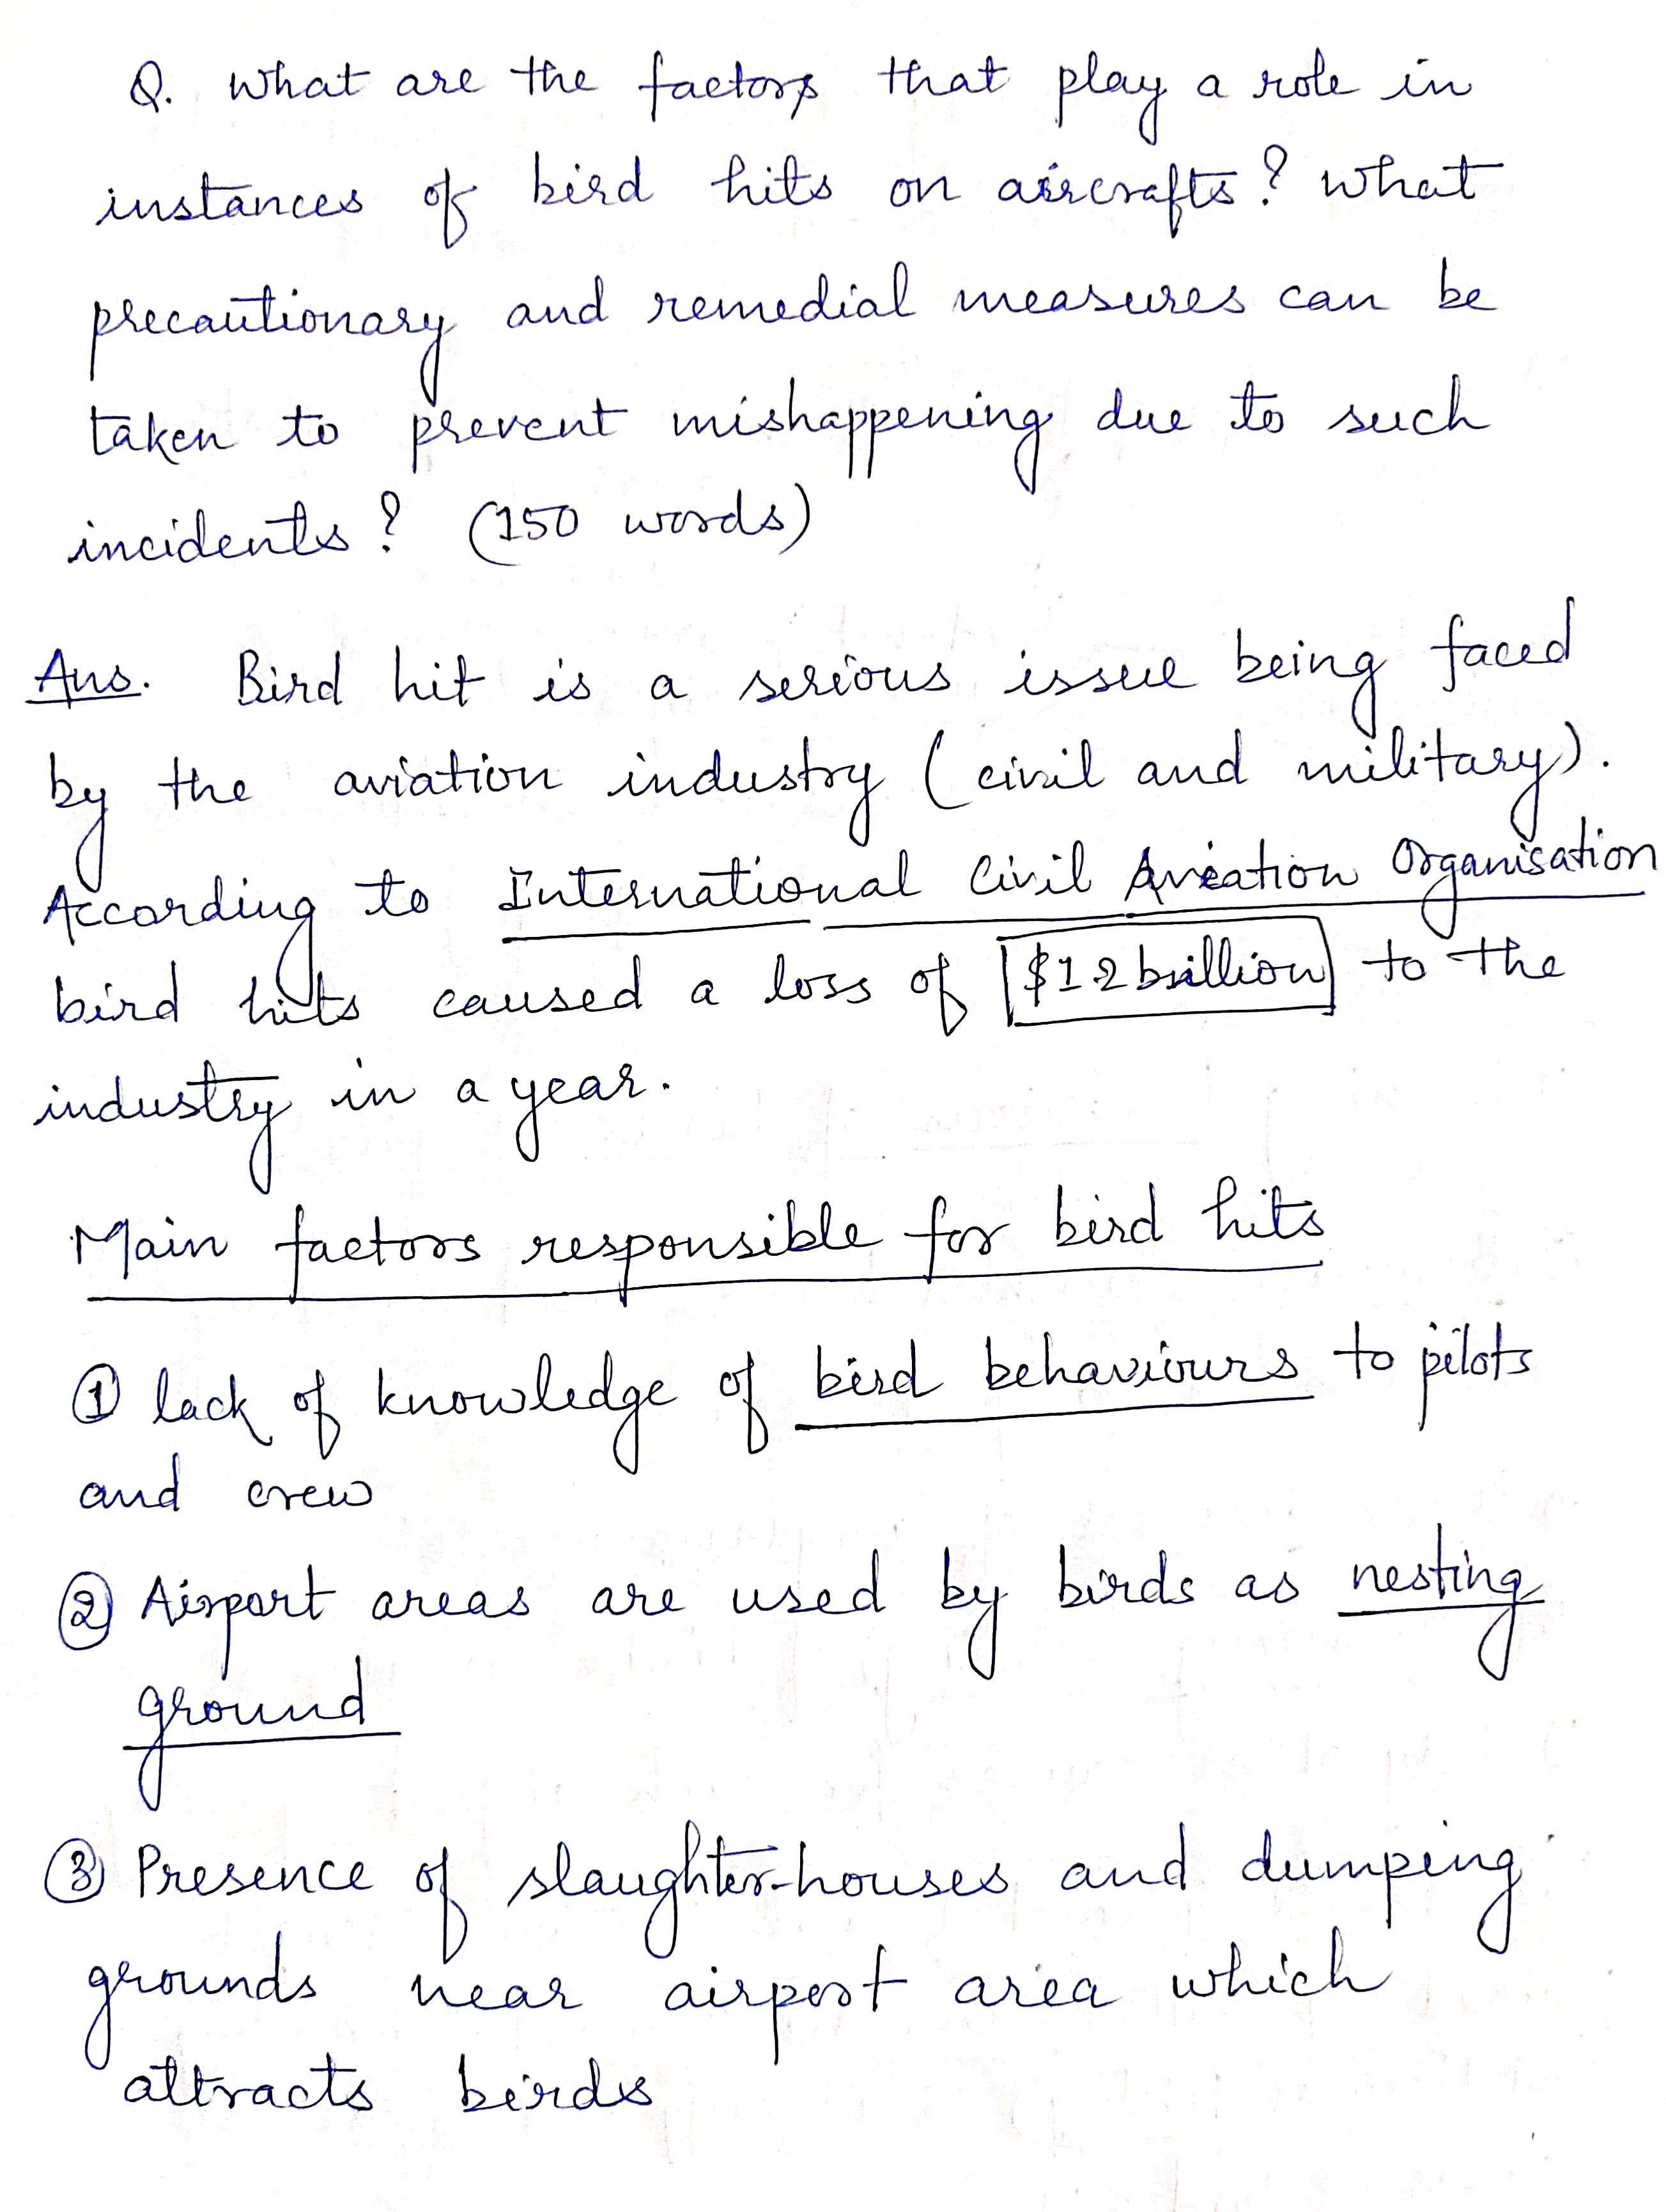 Q. What are the factors that play a role in
instances of bird hits on aircrafts? What
precautionary and remedial measures can be
taken to prevent mishappening due to such
incidents? (150 words)
Ans. Bird hit is a serious issue being faced
by the aviation industry (civil and military).
According to International Civil Aviation Organisation
bird hits caused a loss of $1.2 billion to the
industry in a year.
Main factors responsible for bird hits
① lack of knowledge of bird behaviours to pilots
and crew
② Airport areas are used by birds as nesting
ground
③ Presence of slaughter-houses and dumping
grounds near airport area which
attracts birds